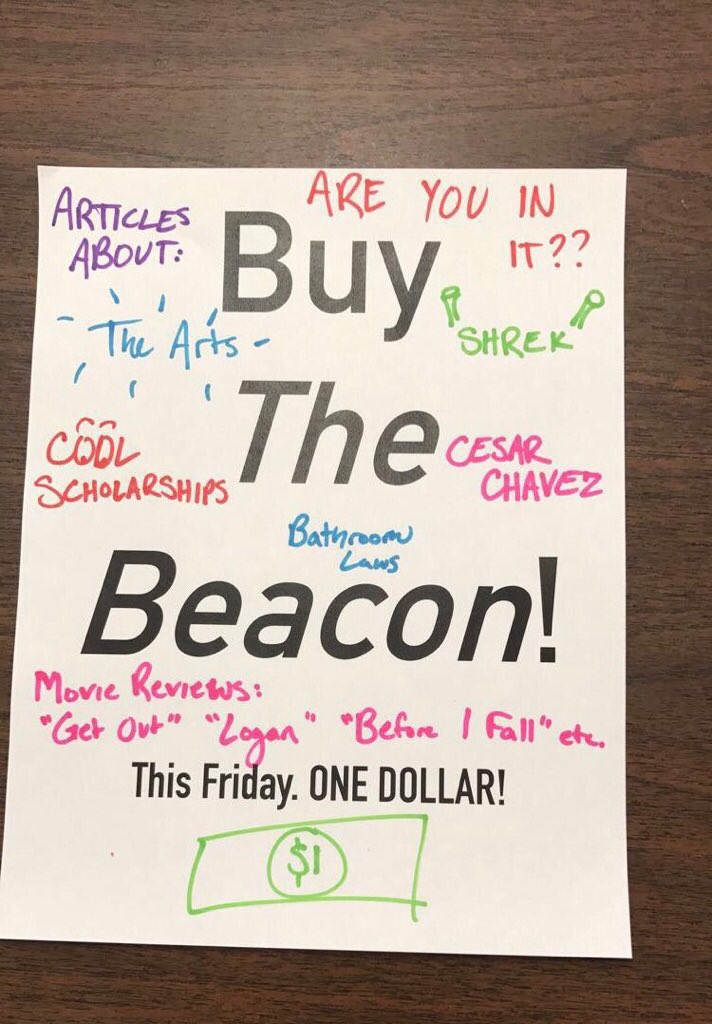 ARE YOU IN
IT??
ARTICLES
ABOUT:
Buy
The Arts
SHREK
The
COOL
SCHOLARSHIPS
CESAR
CHAVEZ
Bathroom
Laws
Beacon!
Movie Reviews:
"Get Out" "Logan" "Before I Fall" etc.
This Friday. ONE DOLLAR!
$1